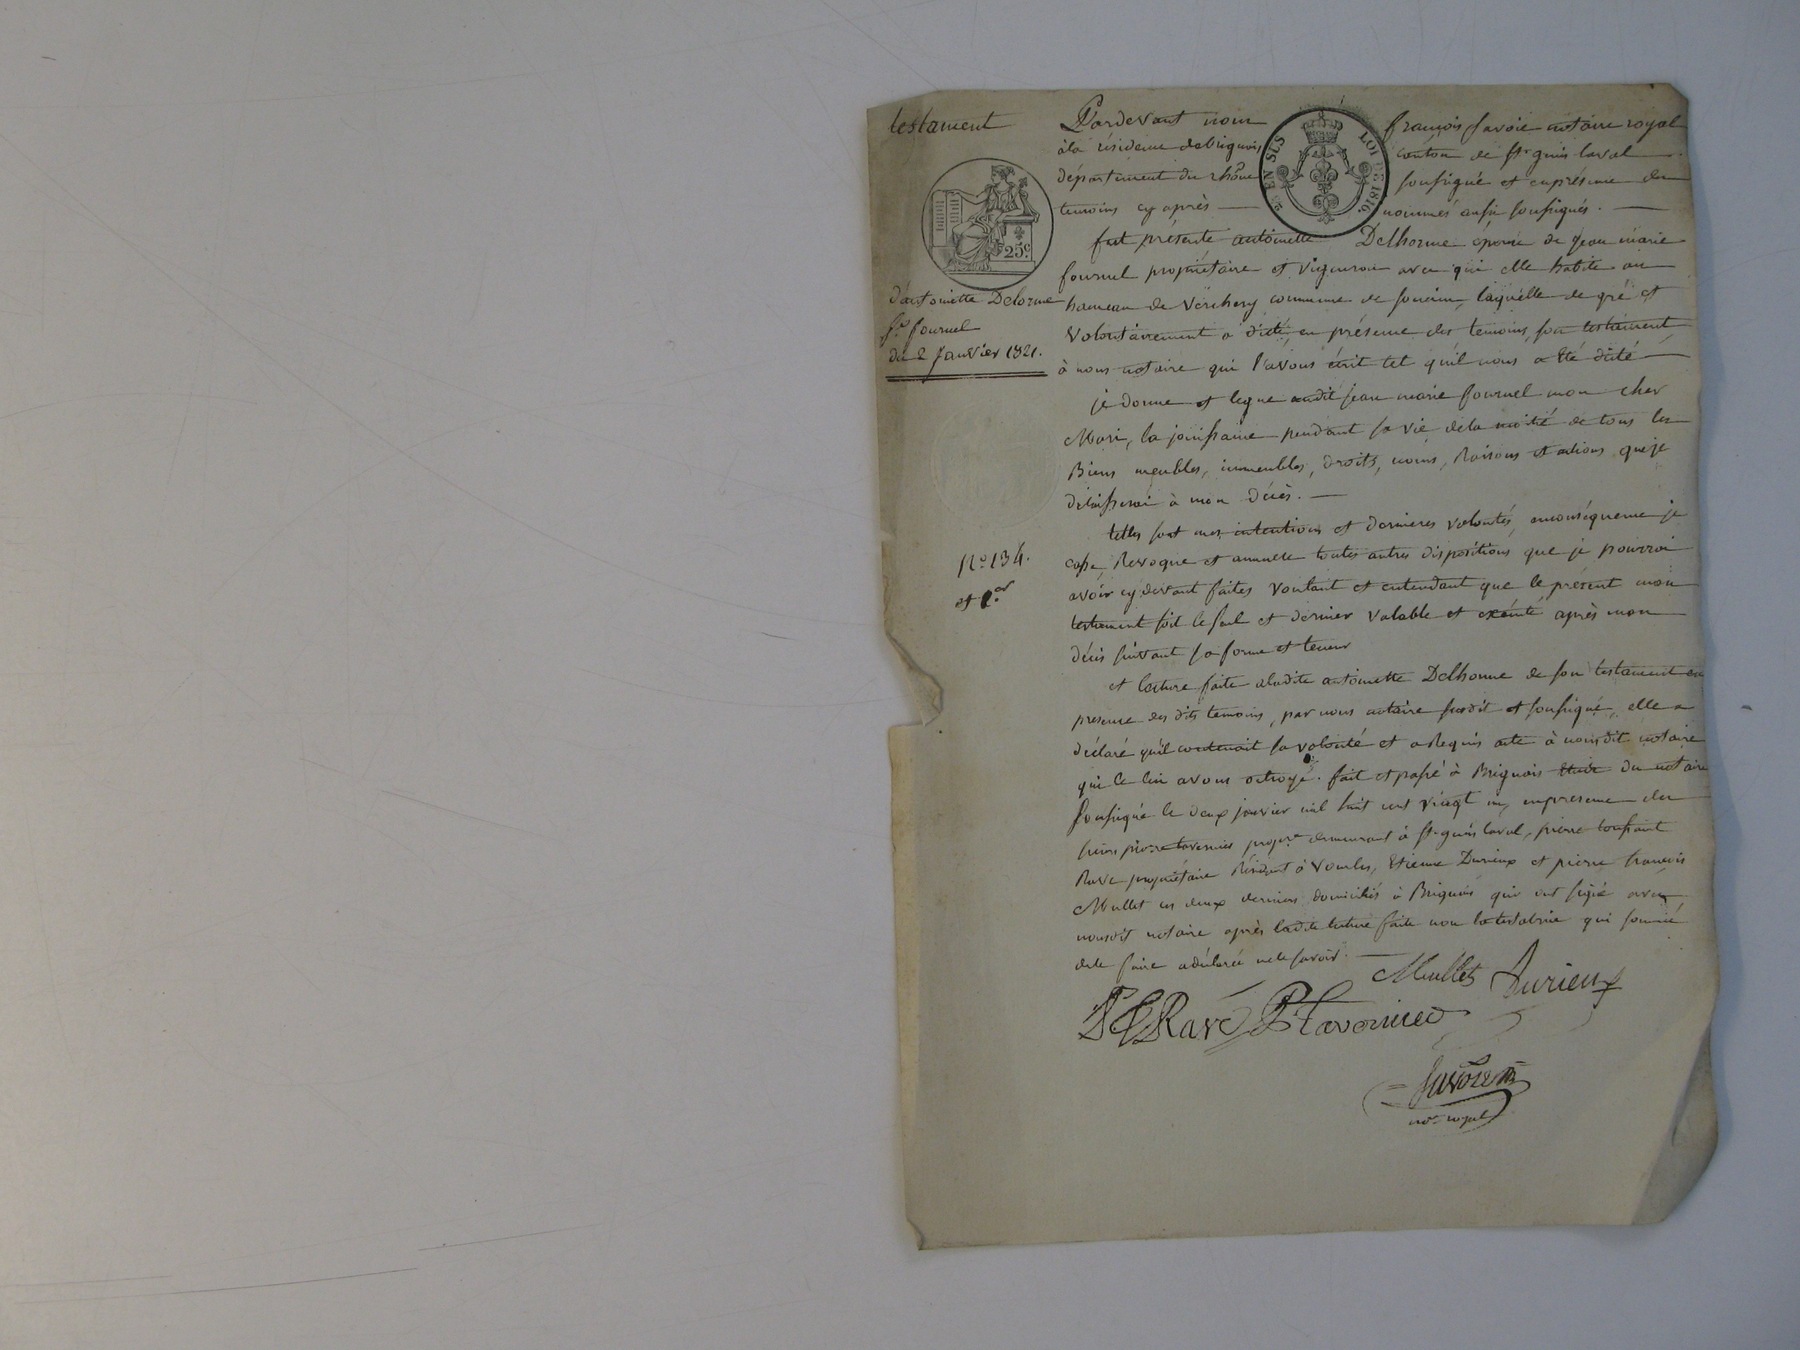 testament
d'antoinette Delorme
fe fournel
du 2 Janvier 1821.
25c
EN SUS LOI DE 1816
No 134.
et 1er
Pardevant nous françois Savoie notaire royal
à la résidence de brignais canton de st genis laval
département du rhône soussigné et en présence des
temoins cy après nommés aussi soussignés.
fut présente antoinette Delhorme épouse de Jean marie
fournel propriétaire et vigneron avec qui elle habite au
hameau de Verchery commune de soucieu, laquelle de gré et
volontairement a dicté, en présence des temoins, son testament
à nous notaire qui l'avons écrit tel qu'il nous a été dicté
je donne et legue audit jean marie fournel mon cher
Mari, la jouissance pendant sa vie de la moitié de tous les
Biens meubles, immeubles, droits, noms, Raisons et actions que je
délaisserai à mon décès.
telles sont mes intentions et dernieres volontés, enconséquence je
casse, Revoque et annulle toutes autres dispositions que je pourrai
avoir cy devant faites voulant et entendant que le présent mon
testament soit le seul et dernier valable et exécuté après mon
décès suivant sa forme et teneur
et lecture faite aladite antoinette Delhorme de son testament en
presence des dits temoins, par nous notaire susdit et soussigné, elle a
déclaré qu'il contenait sa volonté et a Requis acte à nousdit notaire
qui le lui avons octroyé. fait et passé à Brignais Etude du notaire
soussigné le deux janvier mil huit cent vingt un, en presence des
sieurs pierre tavernier propre demeurant à st genis laval, pierre toussaint
Ravé propriétaire Résidant à Vourles, Etienne Durieux et pierre françois
Mullet ces deux derniers domiciliés à Brignais qui ont signé avec
nousdit notaire après ladite lecture faite non la testatrice qui sommé
de le faire a déclaré ne le savoir.
Mullet Durieux
P T Ravé P Tavernier
Savoie
nore royal